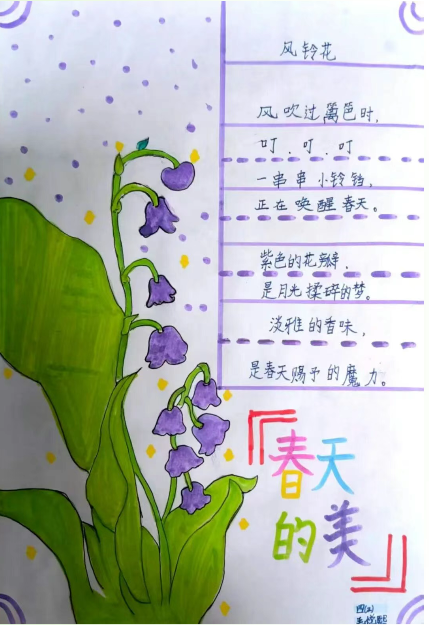 风铃花
风吹过篱笆时，
叮．叮．叮
一串串小铃铛，
正在唤醒春天。
紫色的花瓣，
是月光揉碎的梦。
淡雅的香味，
是春天赐予的魔力。
『春天
的美』